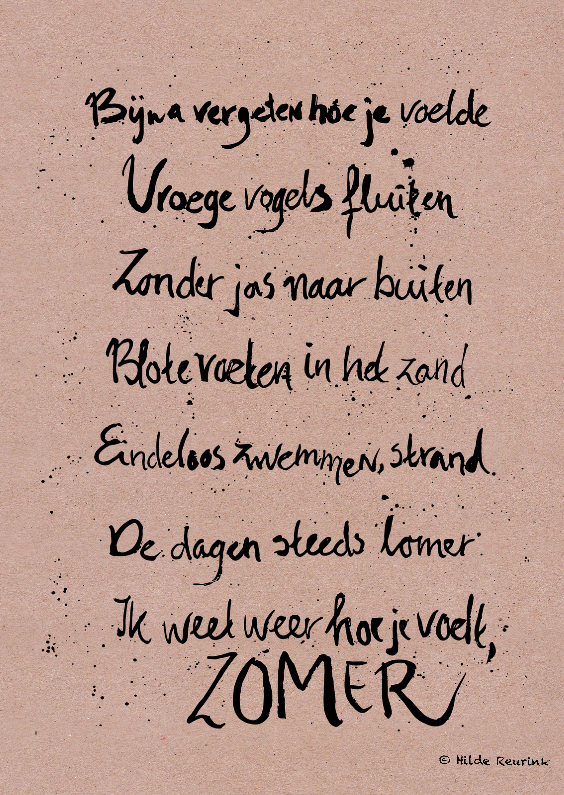 Bijna vergeten hoe je voelde
Vroege vogels fluiten
Zonder jas naar buiten
Blote voeten in het zand
Eindeloos zwemmen, strand.
De dagen steeds lomer
Ik weet weer hoe je voelt,
ZOMER
© Hilde Reurink